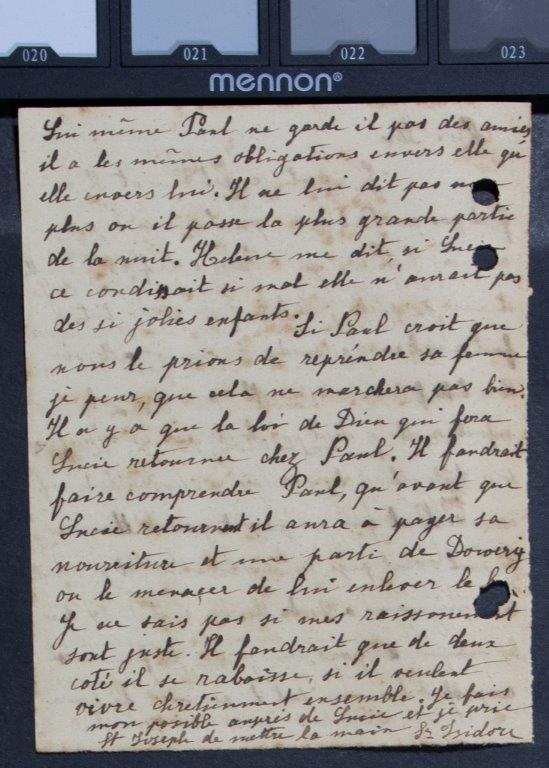 020 021 022 023
mennon®
Lui même Paul ne garde il pas des amies
il a les mêmes obligations envers elle qu'
elle envers lui. Il ne lui dit pas non
plus ou il passe la plus grande partie
de la nuit. Helene me dit si Lucie
ce condisait si mal elle n'aurait pas
des si jolies enfants. Si Paul croit que
nous le prions de reprendre sa femme
je peur, que cela ne marchera pas bien.
Il n y a que la loi de Dieu qui fera
Lucie retournee chez Paul. Il faudrait
faire comprendre Paul, qu'avant que
Lucie retournent il aura à payer sa
nouriture et une parti de Dowery
ou le menacer de lui enlever le
Je ne sais pas si mes raissonement
sont juste. Il faudrait que de deux
coté il se rabaisse, si il veulent
vivre chretienment ensemble. Je fais
mon posible aupres de Lucie et je prie
St Joseph de mettre la main Sr Isidore